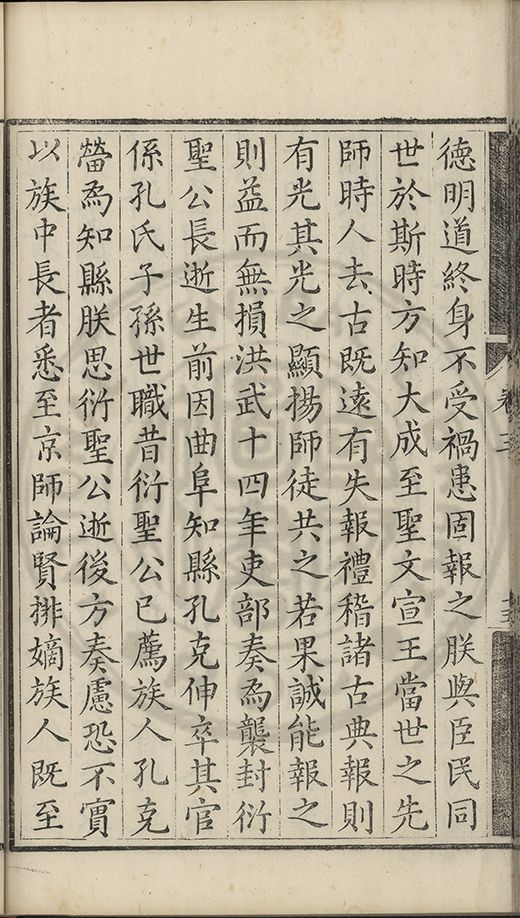 德明道終身不受禍患固報之朕與臣民同
世於斯時方知大成至聖文宣王當世之先
師時人去古既遠有失報禮稽諸古典報則
有光其光之顯揚師徒共之若果誠能報之
則益而無損洪武十四年吏部奏為襲封衍
聖公長逝生前因曲阜知縣孔克伸卒其官
係孔氏子孫世職昔衍聖公已薦族人孔克
㽦為知縣朕思衍聖公逝後方奏慮恐不實
以族中長者悉至京師論賢排嫡族人既至
卷三